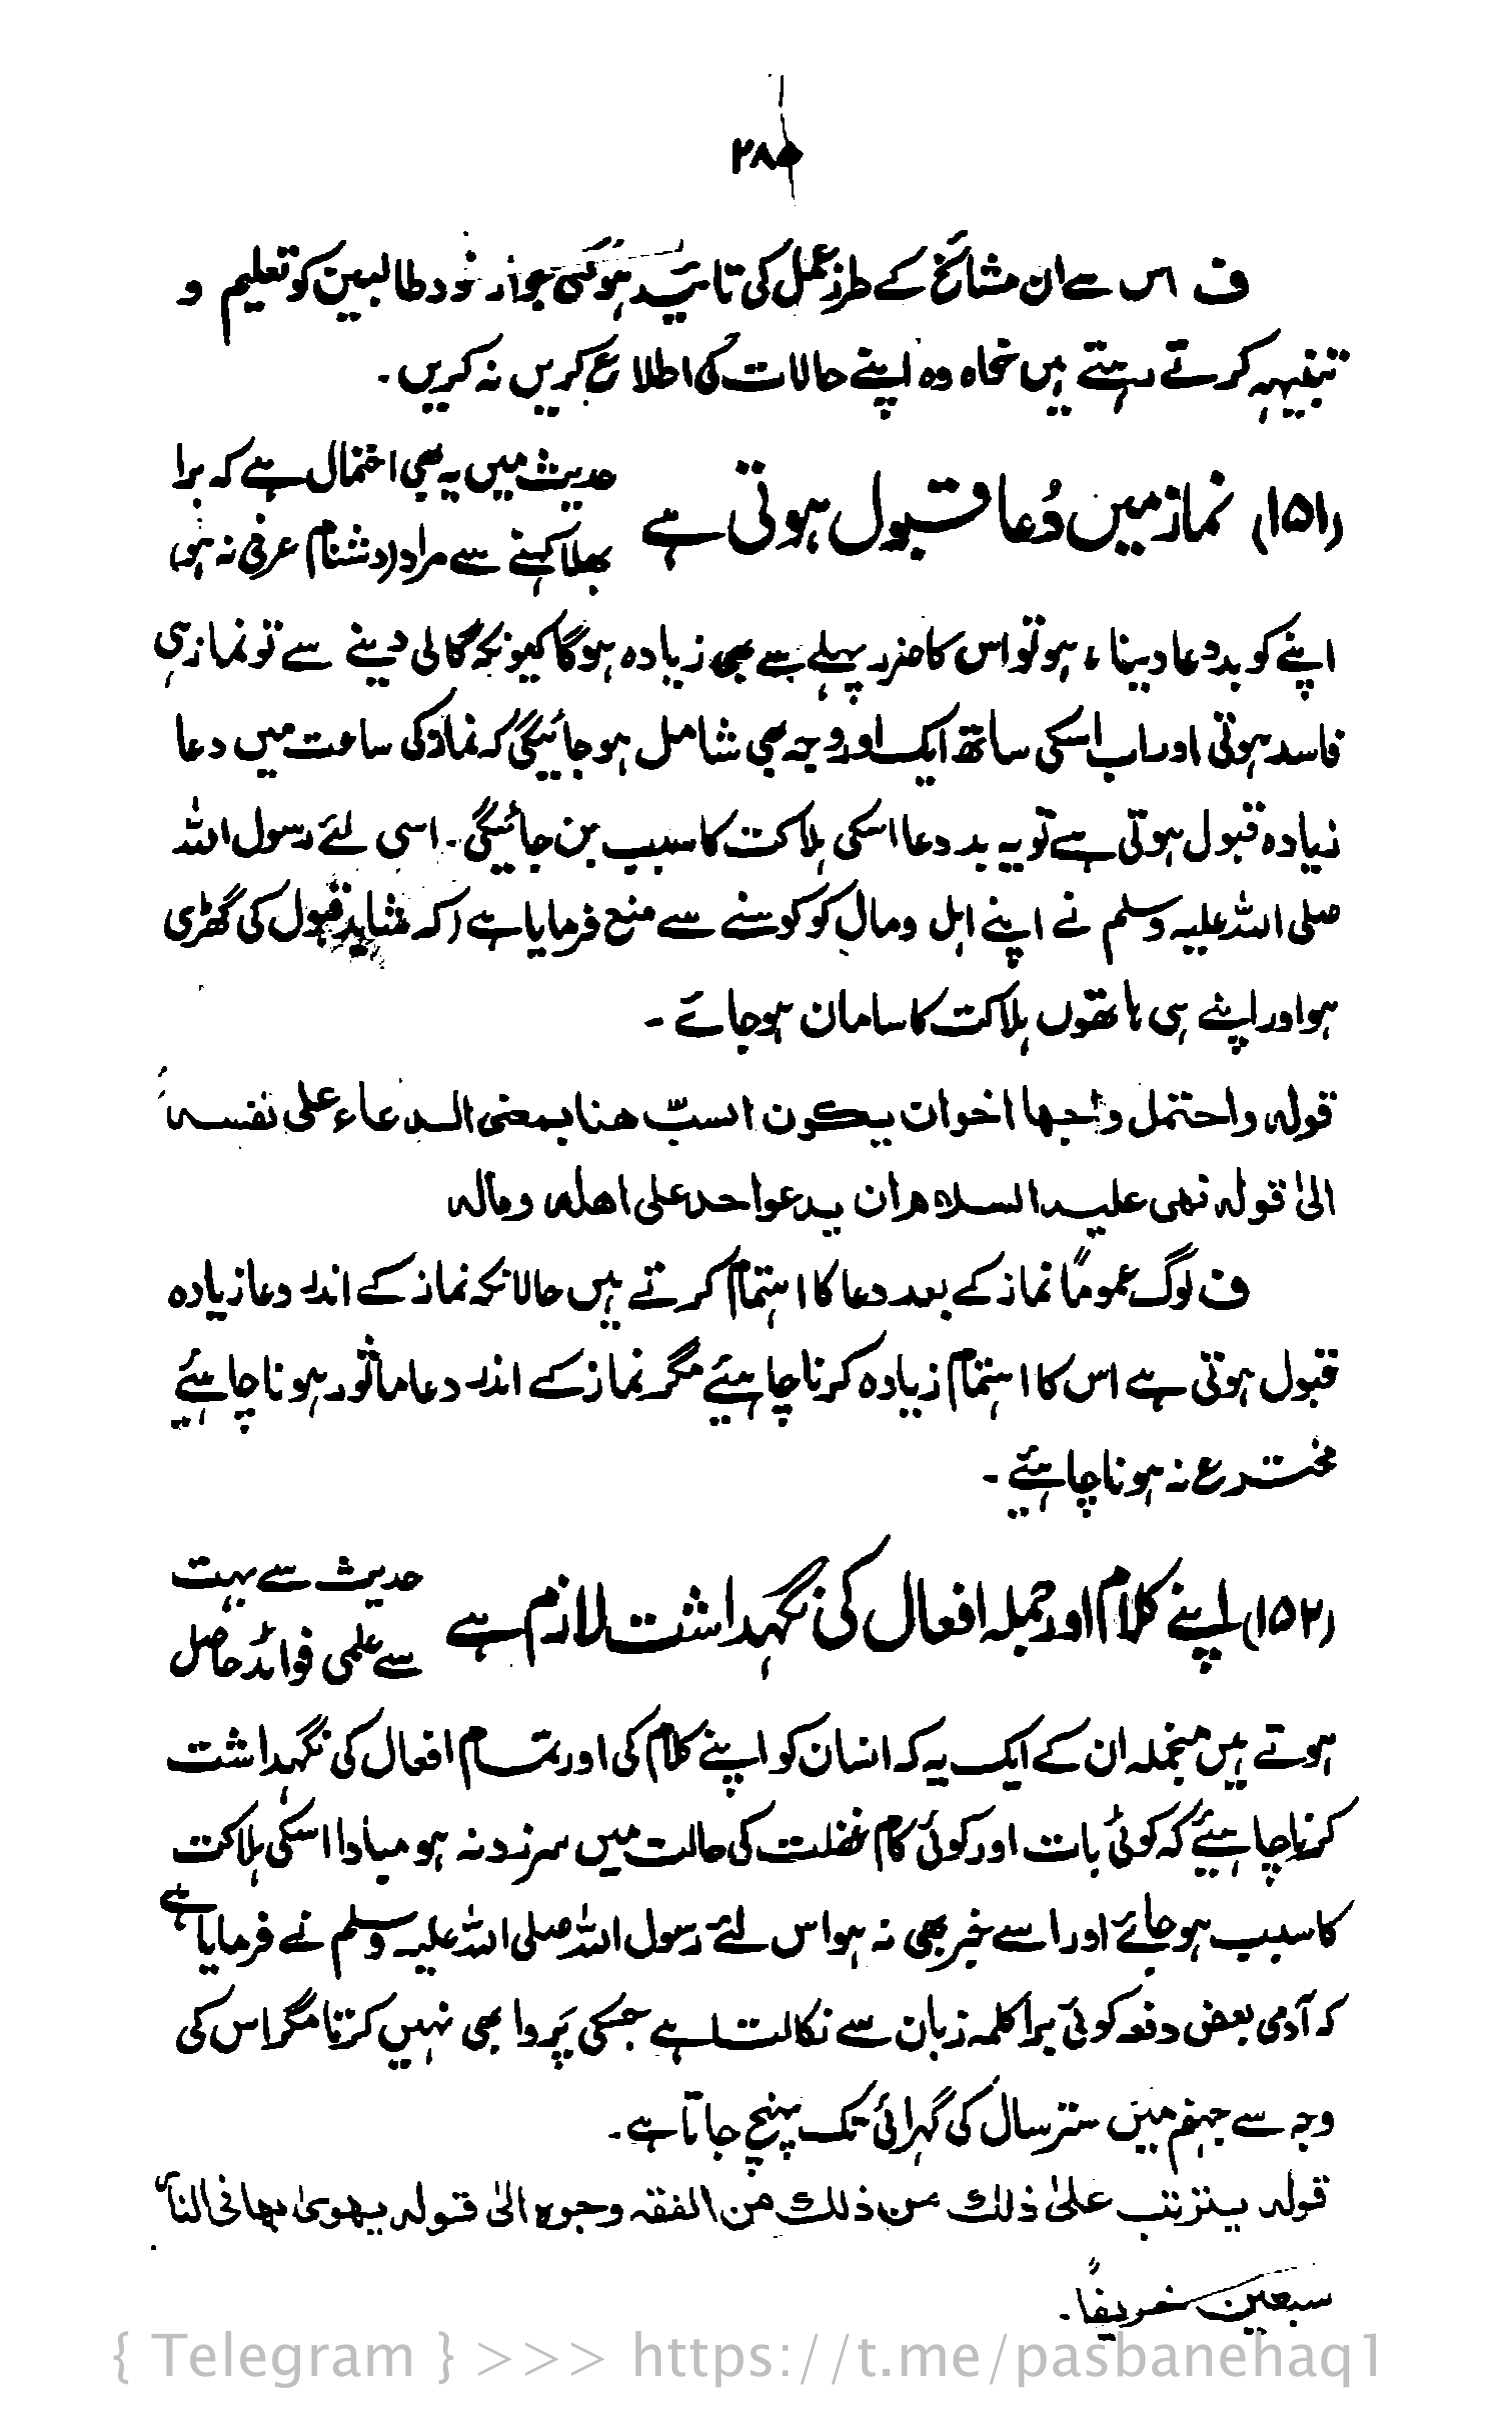 ۲۸۵
ف اس سے ان مشائخ کے طرز عمل کی تائید ہوگئی جو از خود طالبین کو تعلیم و
تنبیہہ کرتے رہتے ہیں خواہ وہ اپنے حالات کی اطلاع کریں نہ کریں۔
(۱۵۱) نماز میں دُعا قبول ہوتی ہے
حدیث میں یہ بھی احتمال ہے کہ برا
بھلا کہنے سے مراد (دشنام عرفی نہ ہو)
اپنے کو بددعا دینا، ہو تو اس کا ضرر پہلے سے بھی زیادہ ہوگا کیونکہ گالی دینے سے تو نماز ہی
فاسد ہوتی اور اب اسکی ساتھ ایک اور وجہ بھی شامل ہوجائیگی کہ نماز کی ساعت میں دعا
زیادہ قبول ہوتی ہے تو یہ بددعا اسکی ہلاکت کا سبب بن جائیگی۔ اسی لئے رسول اللہ
صلی اللہ علیہ وسلم نے اپنے اہل ومال کو کوسنے سے منع فرمایا ہے (کہ شاید قبول کی گھڑی
ہو اور اپنے ہی ہاتھوں ہلاکت کا سامان ہوجائے۔
قولہ واحتمل وجہا اخر ان یکون السبّ ھنا بمعنی الدعاء علی نفسہ
الیٰ قولہ نھی علیہ السلام ان یدعو احد علی اھلہ ومالہ
ف لوگ عموماً نماز کے بعد دعا کا اہتمام کرتے ہیں حالانکہ نماز کے اندر دعا زیادہ
قبول ہوتی ہے اس کا اہتمام زیادہ کرنا چاہئیے مگر نماز کے اندر دعا ماثور ہونا چاہئیے
مخترع نہ ہونا چاہئیے۔
(۱۵۲) اپنے کلام اور جملہ افعال کی نگہداشت لازم ہے
حدیث سے بہت
سے علمی فوائد حاصل
ہوتے ہیں منجملہ ان کے ایک یہ کہ انسان کو اپنے کلام کی اور تمام افعال کی نگہداشت
کرنا چاہئیے کہ کوئی بات اور کوئی کام غفلت کی حالت میں سرزد نہ ہو مبادا اسکی ہلاکت
کا سبب ہوجائے اور اسے خبر بھی نہ ہو اس لئے رسول اللہ صلی اللہ علیہ وسلم نے فرمایا ہے
کہ آدمی بعض دفعہ کوئی برا کلمہ زبان سے نکالتا ہے جسکی پروا بھی نہیں کرتا مگر اس کی
وجہ سے جہنم میں ستر سال کی گہرائی تک پہنچ جاتا ہے۔
قولہ یترتب علیٰ ذلک من ذلک من الفقہ وجوہ الیٰ قولہ یھویٰ بھا فی النار
سبعین خریفاً۔
{ Telegram } >>> https://t.me/pasbanehaq1